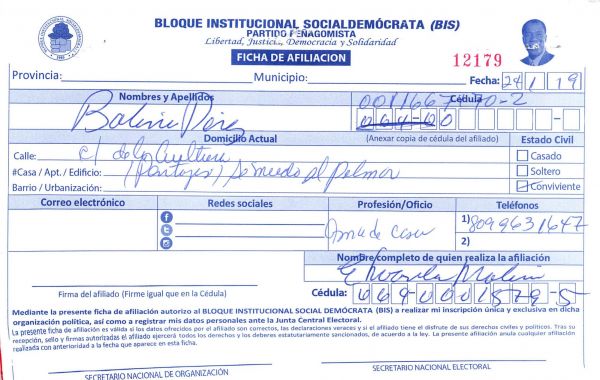 BLOQUE INSTITUCIONAL SOCIALDEMÓCRATA (BIS)
PARTIDO PEÑAGOMISTA
Libertad, Justicia, Democracia y Solidaridad
FICHA DE AFILIACION
12179
Provincia: Municipio: Fecha: 24/1/19
Nombres y Apellidos Cédula
(Anexar copia de cédula del afiliado)
Domicilio Actual Estado Civil
Calle: c/ de la
#Casa / Apt. / Edificio:
Barrio / Urbanización:
Casado
Soltero
Conviviente
Correo electrónico Redes sociales Profesión/Oficio Teléfonos
Ama de casa
1) 8099631647
2)
Nombre completo de quien realiza la afiliación
Firma del afiliado (Firme igual que en la Cédula)
Cédula:
Mediante la presente ficha de afiliación autorizo al BLOQUE INSTITUCIONAL SOCIAL DEMÓCRATA (BIS) a realizar mi inscripción única y exclusiva en dicha
organización política, así como a registrar mis datos personales ante la Junta Central Electoral.
La presente ficha de afiliación es válida si los datos ofrecidos por el afiliado son correctos, las declaraciones veraces y si el afiliado tiene el disfrute de sus derechos civiles y políticos. Tras su
recepción, sello y firmas autorizadas el afiliado ejercerá todos los derechos y los deberes estatutariamente sancionados, de acuerdo a la ley. La presente afiliación anula cualquier afiliación
realizada con anterioridad a la fecha que aparece en esta ficha.
SECRETARIO NACIONAL DE ORGANIZACIÓN SECRETARIO NACIONAL ELECTORAL